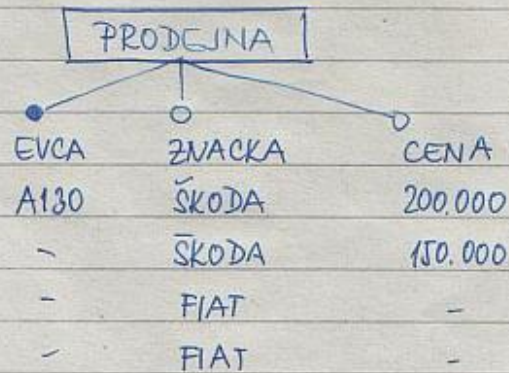 PRODEJNA
EVCA ZNACKA CENA
A130 ŠKODA 200.000
- ŠKODA 150.000
- FIAT -
- FIAT -